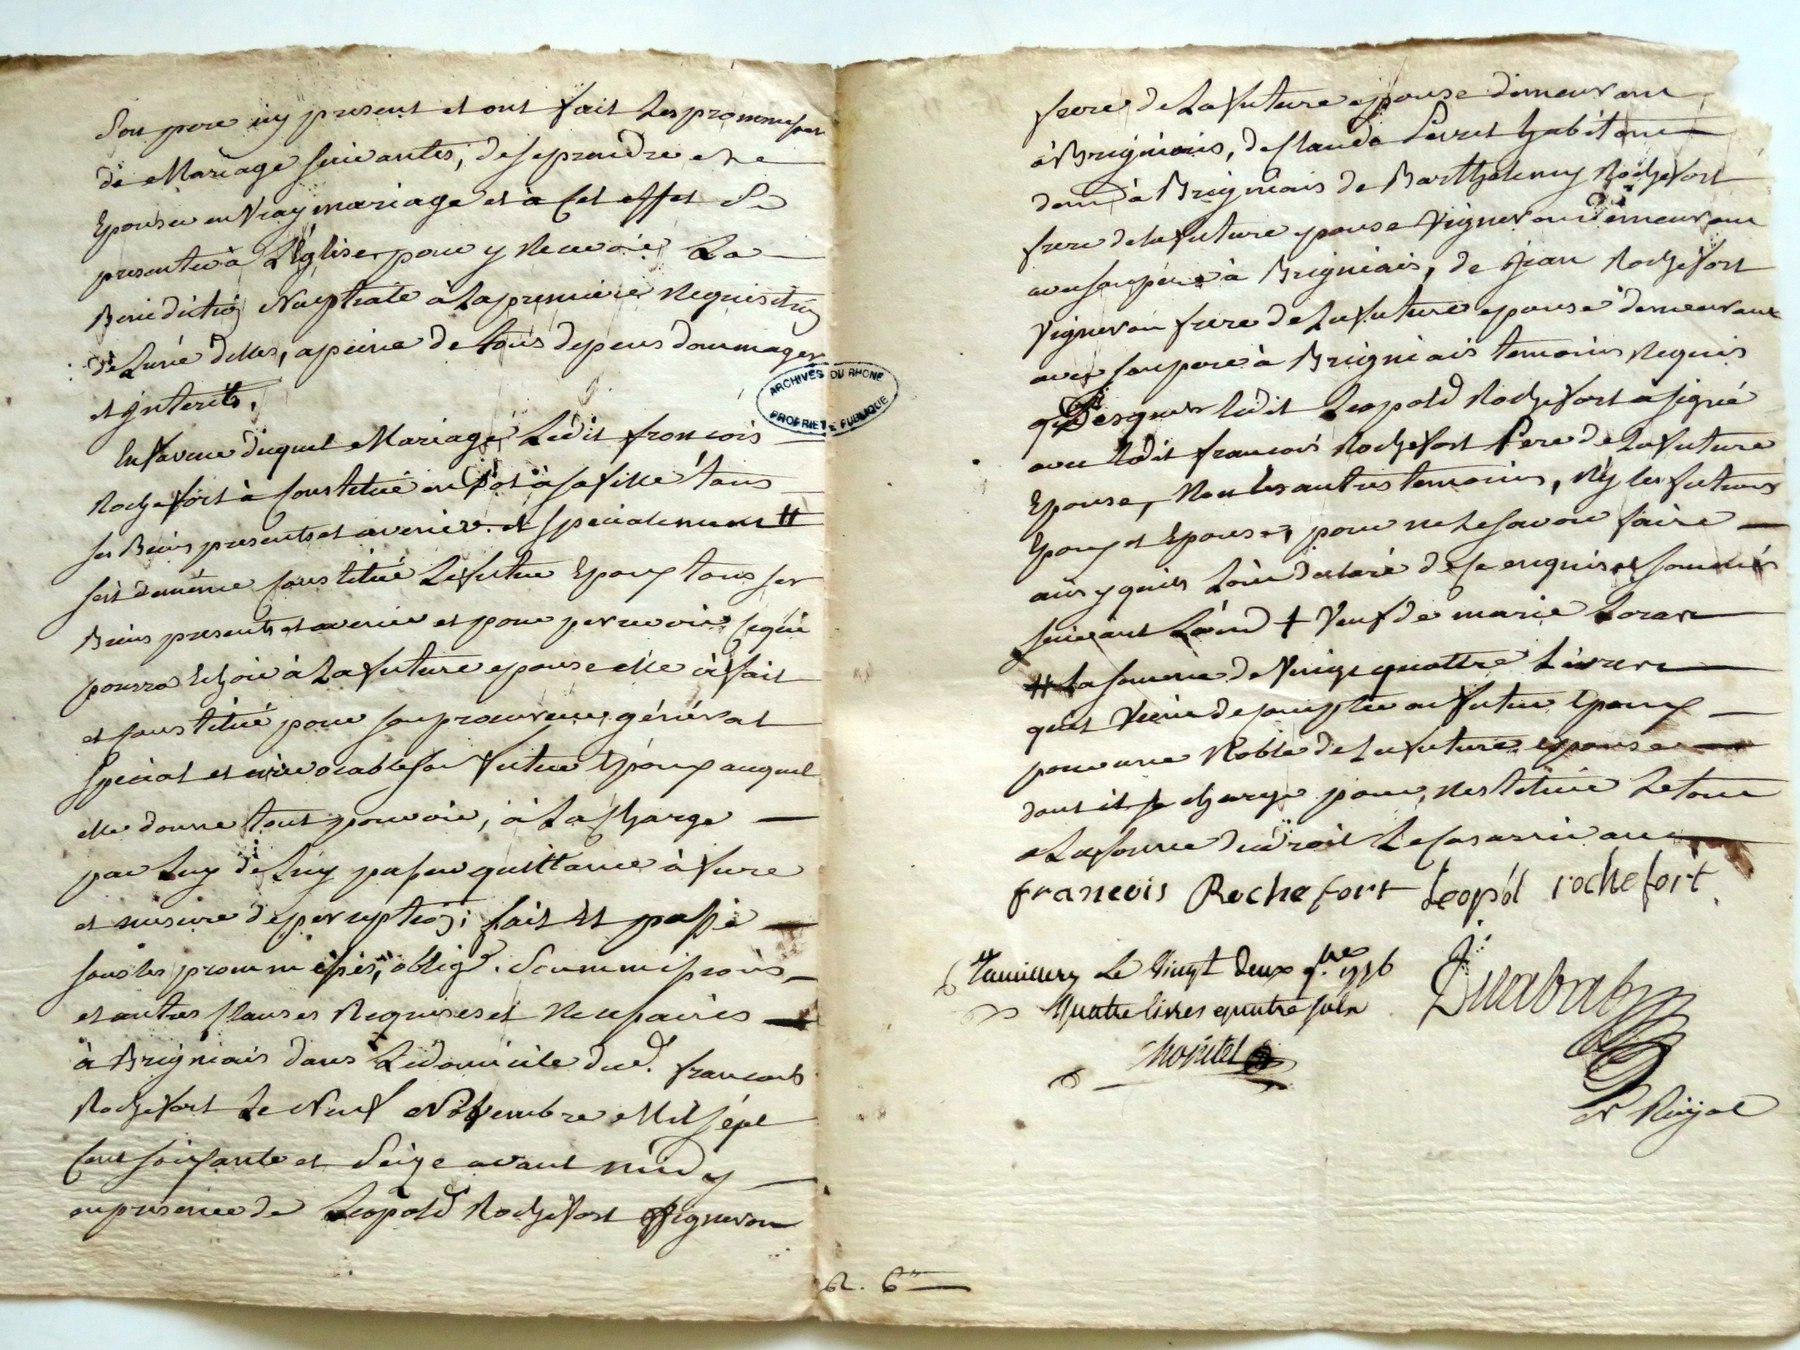 Son pere icy present et ont fait Les prommesses
de Mariage suivantes, de se prendre et se
Epouser en vray mariage et à Cet effet Se
presenter à L'Eglise pour y Recevoir La
Benediction Nuptiale à La premiere Requisition
de L'une d'elles, a peine de tous depens dommages
et jnterêts.
En faveur duquel Mariage Ledit francois
Rochefort à Constitué en Dot à sa fille tous
ses Biens presents et avenir et specialement #
s'est de même Constitué Le futur Epoux tous ses
Biens presents et avenir et pour percevoir ce qui
pourra Echoir à La future epouse elle à fait
et Constitué pour son procureur général
special et irrevocable son futur Epoux auquel
elle donne tout pouvoir, à La Charge
par Luy de Luy passer quittance à fure
et mesure de perception; fait et passé
sous les prommesses, oblig. Soummissions,
et autres Clauses Requises et Necessaires
à Brigniais dans Le domicile dud. francois
Rochefort Le Neuf Novembre Mil sept
Cent soixante et Seize avant midy
en presence de Leopold Rochefort Vigneron
frere de La future epouse demeurant
à Brigniais, de Claude Pevret habitant
dem. à Brigniais de Barthelemy Rochefort
frere de la future epouse Vigneron demeurant
avec son pere à Brigniais, de Jean Rochefort
Vigneron frere de La future epouse demeurant
avec son pere à Brigniais temoins Requis
Desquels ledit Leopold Rochefort a signé
avec ledit francois Rochefort Pere de La future
Epouse, Non les autres temoins, Ny les futurs
Epoux et Epouse, pour ne le savoir faire
ainsy qu'ils L'ont declaré de ce enquis et sommés
suivant L'ord + Veuf de marie
# La somme de Vingt quattre Livres
qu'il Vient de compter au futur Epoux
pour une Robe de La future epouse
dont il se charge pour Restituer Le tout
a La forme du droit Le cas arrivant
francois Rochefort Leopol rochefort
Le Vingt deux 9.bre 1776
Quatre livres quatre sols
Nr Royal
ARCHIVES DU RHONE
PROPRIETE PUBLIQUE